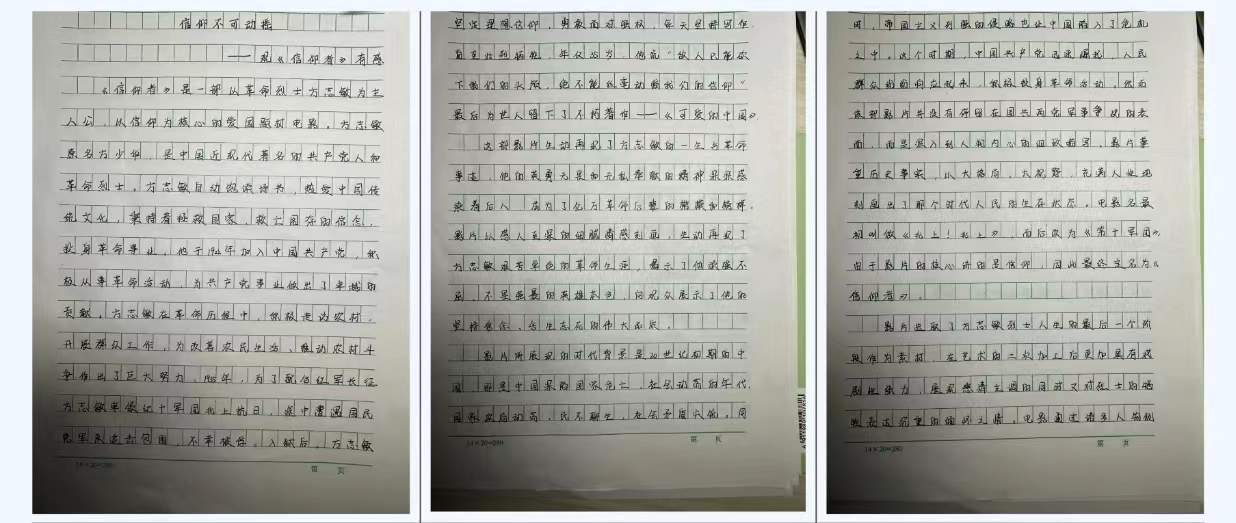 信仰不可动摇
——观《信仰者》有感
《信仰者》是一部以革命烈士方志敏为主
人公,以信仰为核心的爱国题材电影。方志敏
原名方少华,是中国近现代著名的共产党人和
革命烈士。方志敏自幼饱读诗书,热爱中国传
统文化,秉持着拯救国家,救亡图存的信念,
投身革命事业。他于1924年加入中国共产党,积
极从事革命活动,为共产党事业做出了卓越的
贡献。方志敏在革命历程中,积极走访农村,
开展群众工作,为改善农民生活、推动农村斗
争作出了巨大努力。1935年,为了配合红军长征
方志敏率领红十军团北上抗日,途中遭遇国民
党军队追击包围,不幸被俘。入狱后,方志敏
坚定理想信仰,勇敢面对强敌,每天坚持写作
直至壮烈牺牲,年仅36岁。
下我们的头颅,绝不能动摇我们的信仰"
最后为世人留下了不朽著作——《可爱的中国》。
这部影片生动再现了方志敏的一生与革命
事迹,他的英勇无畏和无私奉献的精神深深感
染着后人,成为了亿万革命后辈的楷模和榜样。
影片以感人至深的细腻情感刻画,生动再现了
方志敏艰苦卓绝的革命生涯,展示了他顽强不
屈,不畏强暴的英雄本色,向观众展示了他的
坚持信念、舍生忘死的伟大品质。
影片所展现的时代背景是20世纪初期的中
国,正是中国面临国家危亡,社会动荡的年代,
国家政局动荡,民不聊生,社会矛盾尖锐。同
时,帝国主义列强的侵略也让中国陷入了危机
之中。这个时期,中国共产党迅速崛起,人民
群众纷纷响应起来,积极投身革命活动。然而
该部影片并没有停留在国共两党军事争战的表
面,而是深入到人物内心的细致描写,影片尊
重历史事实,以大格局,大视野,充满人性地
刻画出了那个时代人民的生存状态。电影名最
初叫做《北上!北上》,而后改为《第十军团》,
由于影片的核心讲的是信仰,因此最终定名为《
信仰者》。
影片选取了方志敏烈士人生的最后一个阶
段作为素材,在艺术的二次加工后更加具有戏
剧性张力,展现悲壮主题的同时又对烈士的牺
牲表达沉重的缅怀之情。电影通过诸多人物
14×20=280
第 页
14×20=280
第 页
14×20=280
第 页